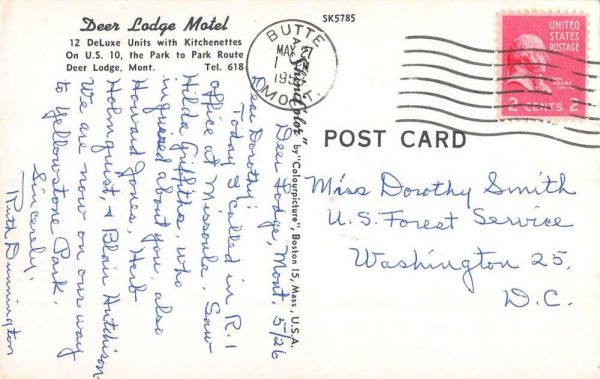 Deer Lodge Motel
12 DeLuxe Units with Kitchenettes
On U.S. 10, the Park to Park Route
Deer Lodge, Mont. Tel. 618
SK5785
BUTTE
MAY 27
1
195
MONT.
UNITED
STATES
POSTAGE
2 CENTS 2
POST CARD
by "Colourpicture", Boston 15, Mass., U.S.A.
Deer Lodge, Mont. 5/26
Dear Dorothy:
Today I called in R.1
office at Missoula. Saw
Hilda Griffiths, who
inquired about you, also
Howard Jones, Herb
Holmquist, & Blair Hutchison.
We are now on our way
to Yellowstone Park.
Sincerely,
Ruth Dunnington
Miss Dorothy Smith
U.S. Forest Service
Washington 25,
D.C.